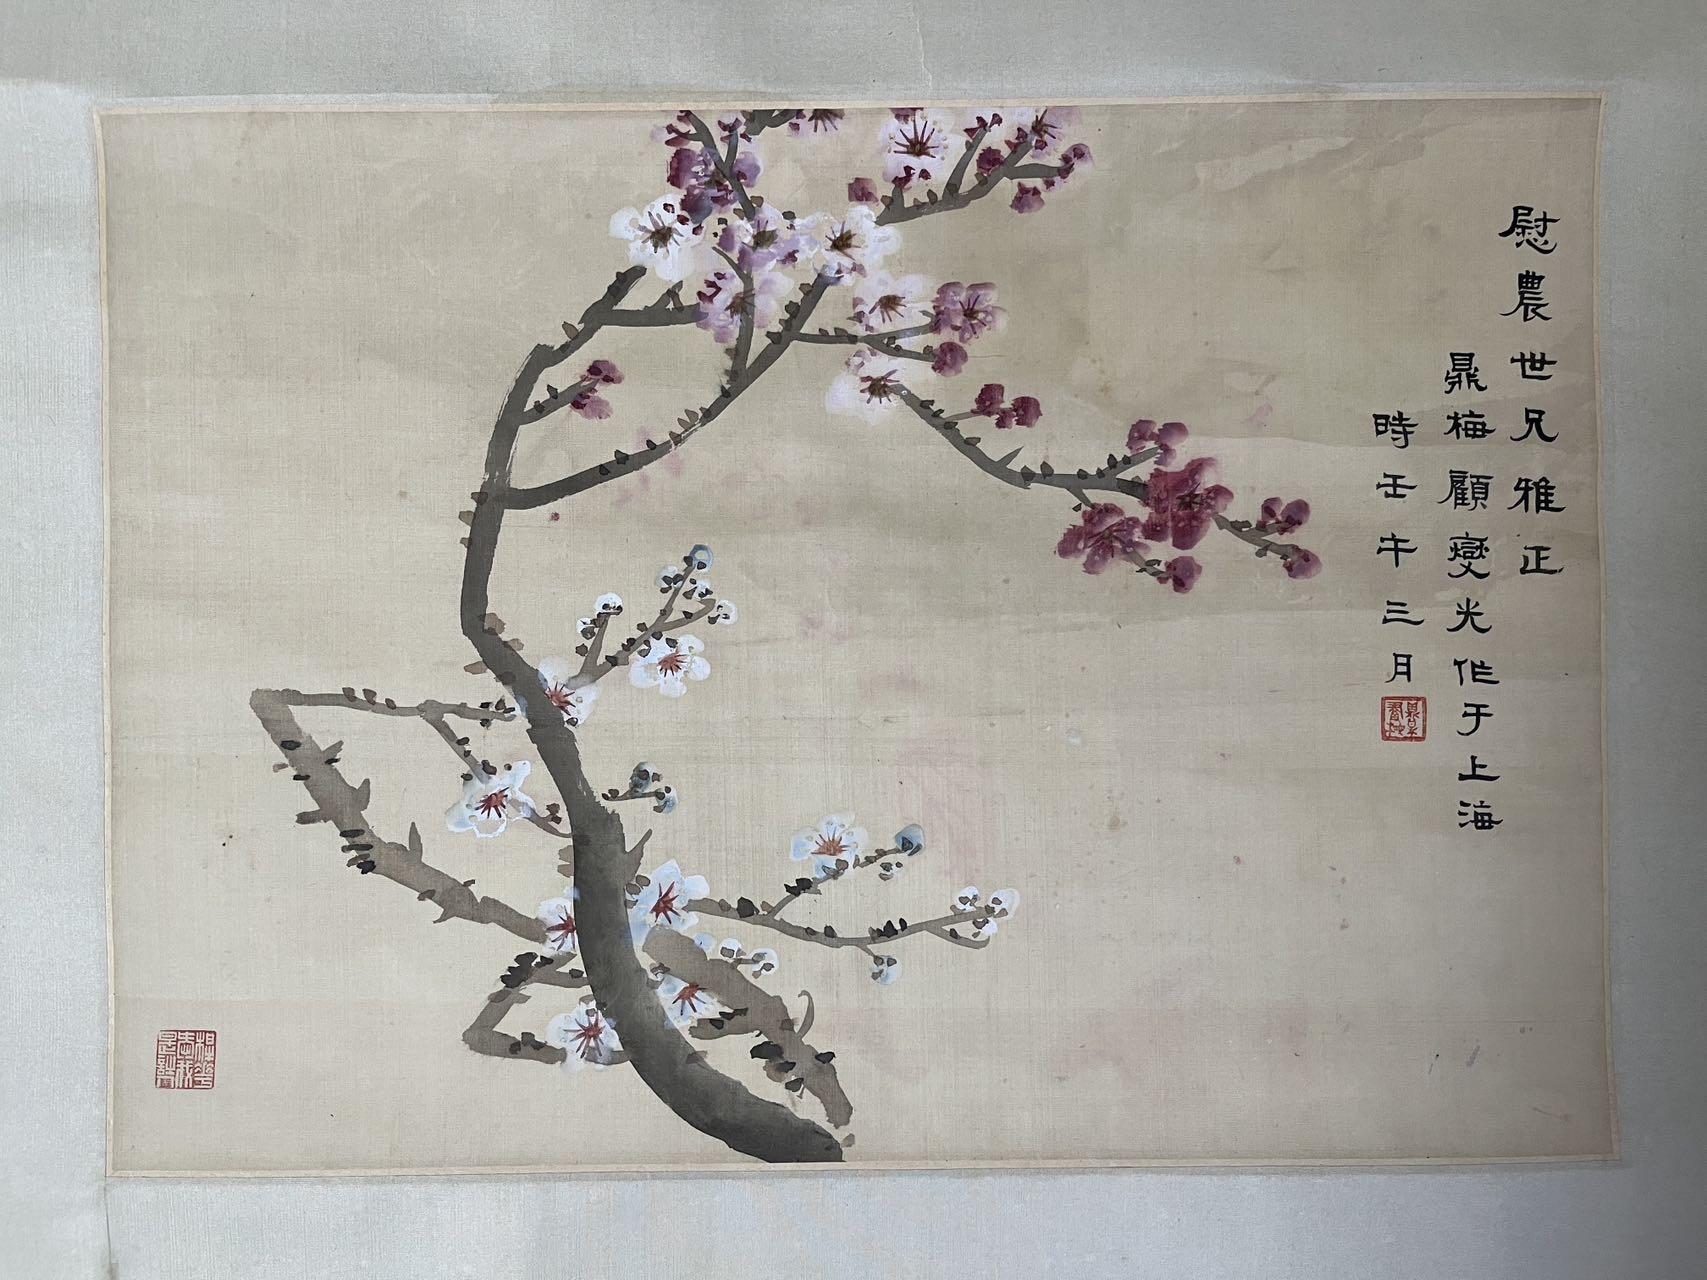 慰農世兄雅正
鼎梅顧燮光作于上海
時壬午三月